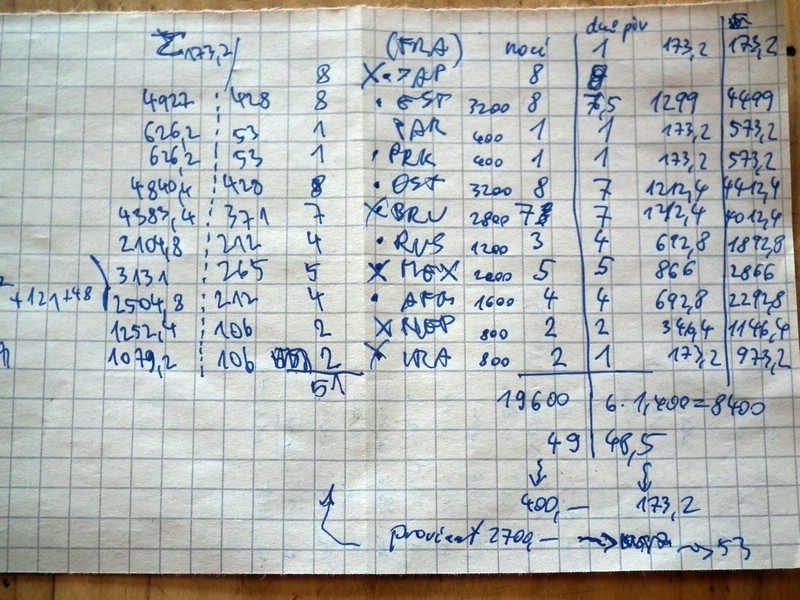 Σ173,2 (FRA) nocí dnů piv 1 173,2 173,2
8 X • ZAP 8 8
4927 428 8 • EST 3200 8 7,5 1299 4499
626,2 53 1 PAR 400 1 1 173,2 573,2
626,2 53 1 • PRK 400 1 1 173,2 573,2
4840,4 428 8 • OST 3200 8 7 1212,4 4412,4
4383,4 371 7 X BRU 2800 7 7 1212,4 4012,4
2104,8 212 4 • RUS 1200 3 4 692,8 1892,8
3131 265 5 X MEX 2000 5 5 866 2866
+121+48 2504,8 212 4 • AFG 1600 4 4 692,8 2292,8
1252,4 106 2 X NEP 800 2 2 346,4 1146,4
1079,2 106 2 X URA 800 2 1 173,2 973,2
51
19600 6 · 1,400 = 8400
49 48,5
400,— 173,2
proviant 2700,— → 53